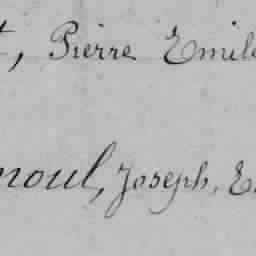 t, Pierre Emile
noul, Joseph, E